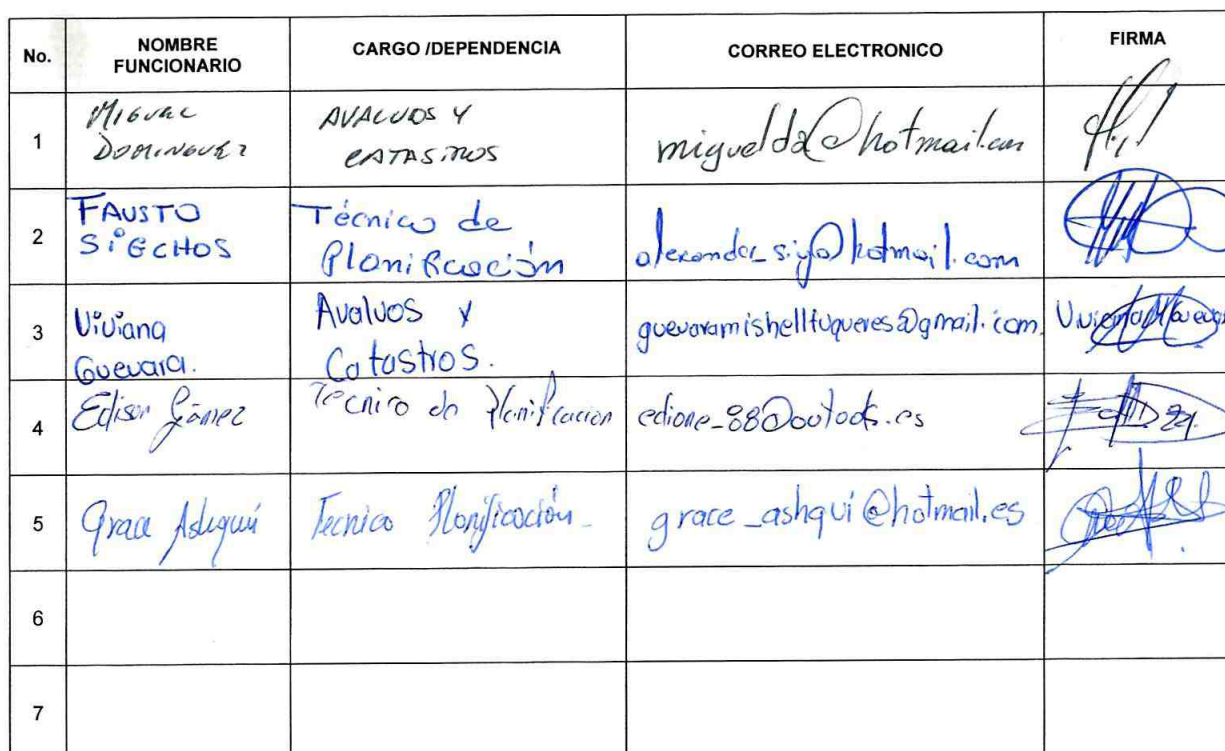 No.
NOMBRE
FUNCIONARIO
CARGO /DEPENDENCIA
CORREO ELECTRONICO
FIRMA
1
MIGUEL
DOMINGUEZ
AVALUOS Y
CATASTROS
miguelda@hotmail.com
2
FAUSTO
SIGCHOS
Técnico de
Planificación
@hotmail.com
3
Viviana
Guevara.
Avaluos y
Catastros.
guevaramishellfuqueres@gmail.com.
4
Edison Gómez
Tecnico de Planificacion
5
Grace Ashqui
Tecnico Planificación
grace_ashqui@hotmail.es
6
7